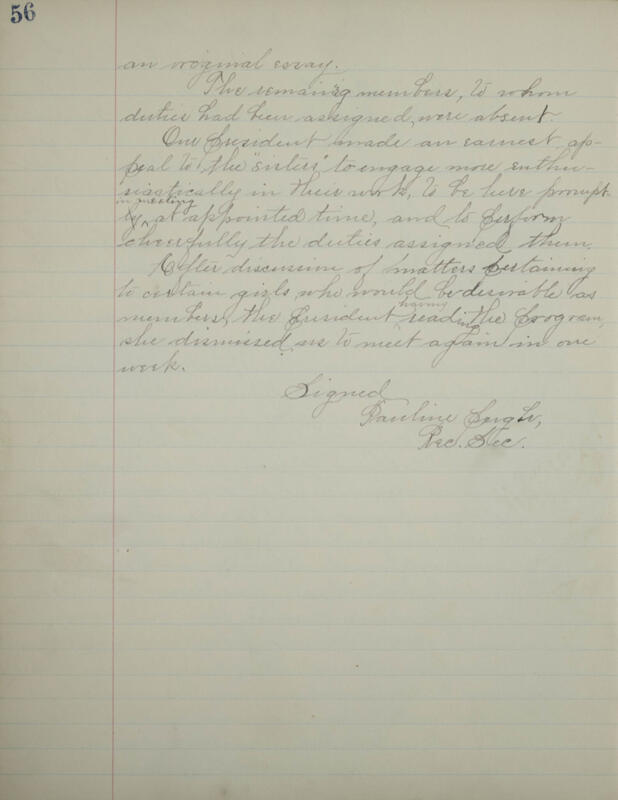 56
an original essay.
The remaining members, to whom
duties had been assigned, were absent.
Our President made an earnest ap-
peal to the "sisters" to engage more enthu-
siastically in their work, to be here prompt-
in meeting
ly ^ at appointed time, and to perform
cheerfully the duties assigned them.
After discussion of matters pertaining
to certain girls who would be desirable as
having
members, the President reading the Program,
she dismissed us to meet again in one
week.
Signed
Pauline
Rec. Sec.